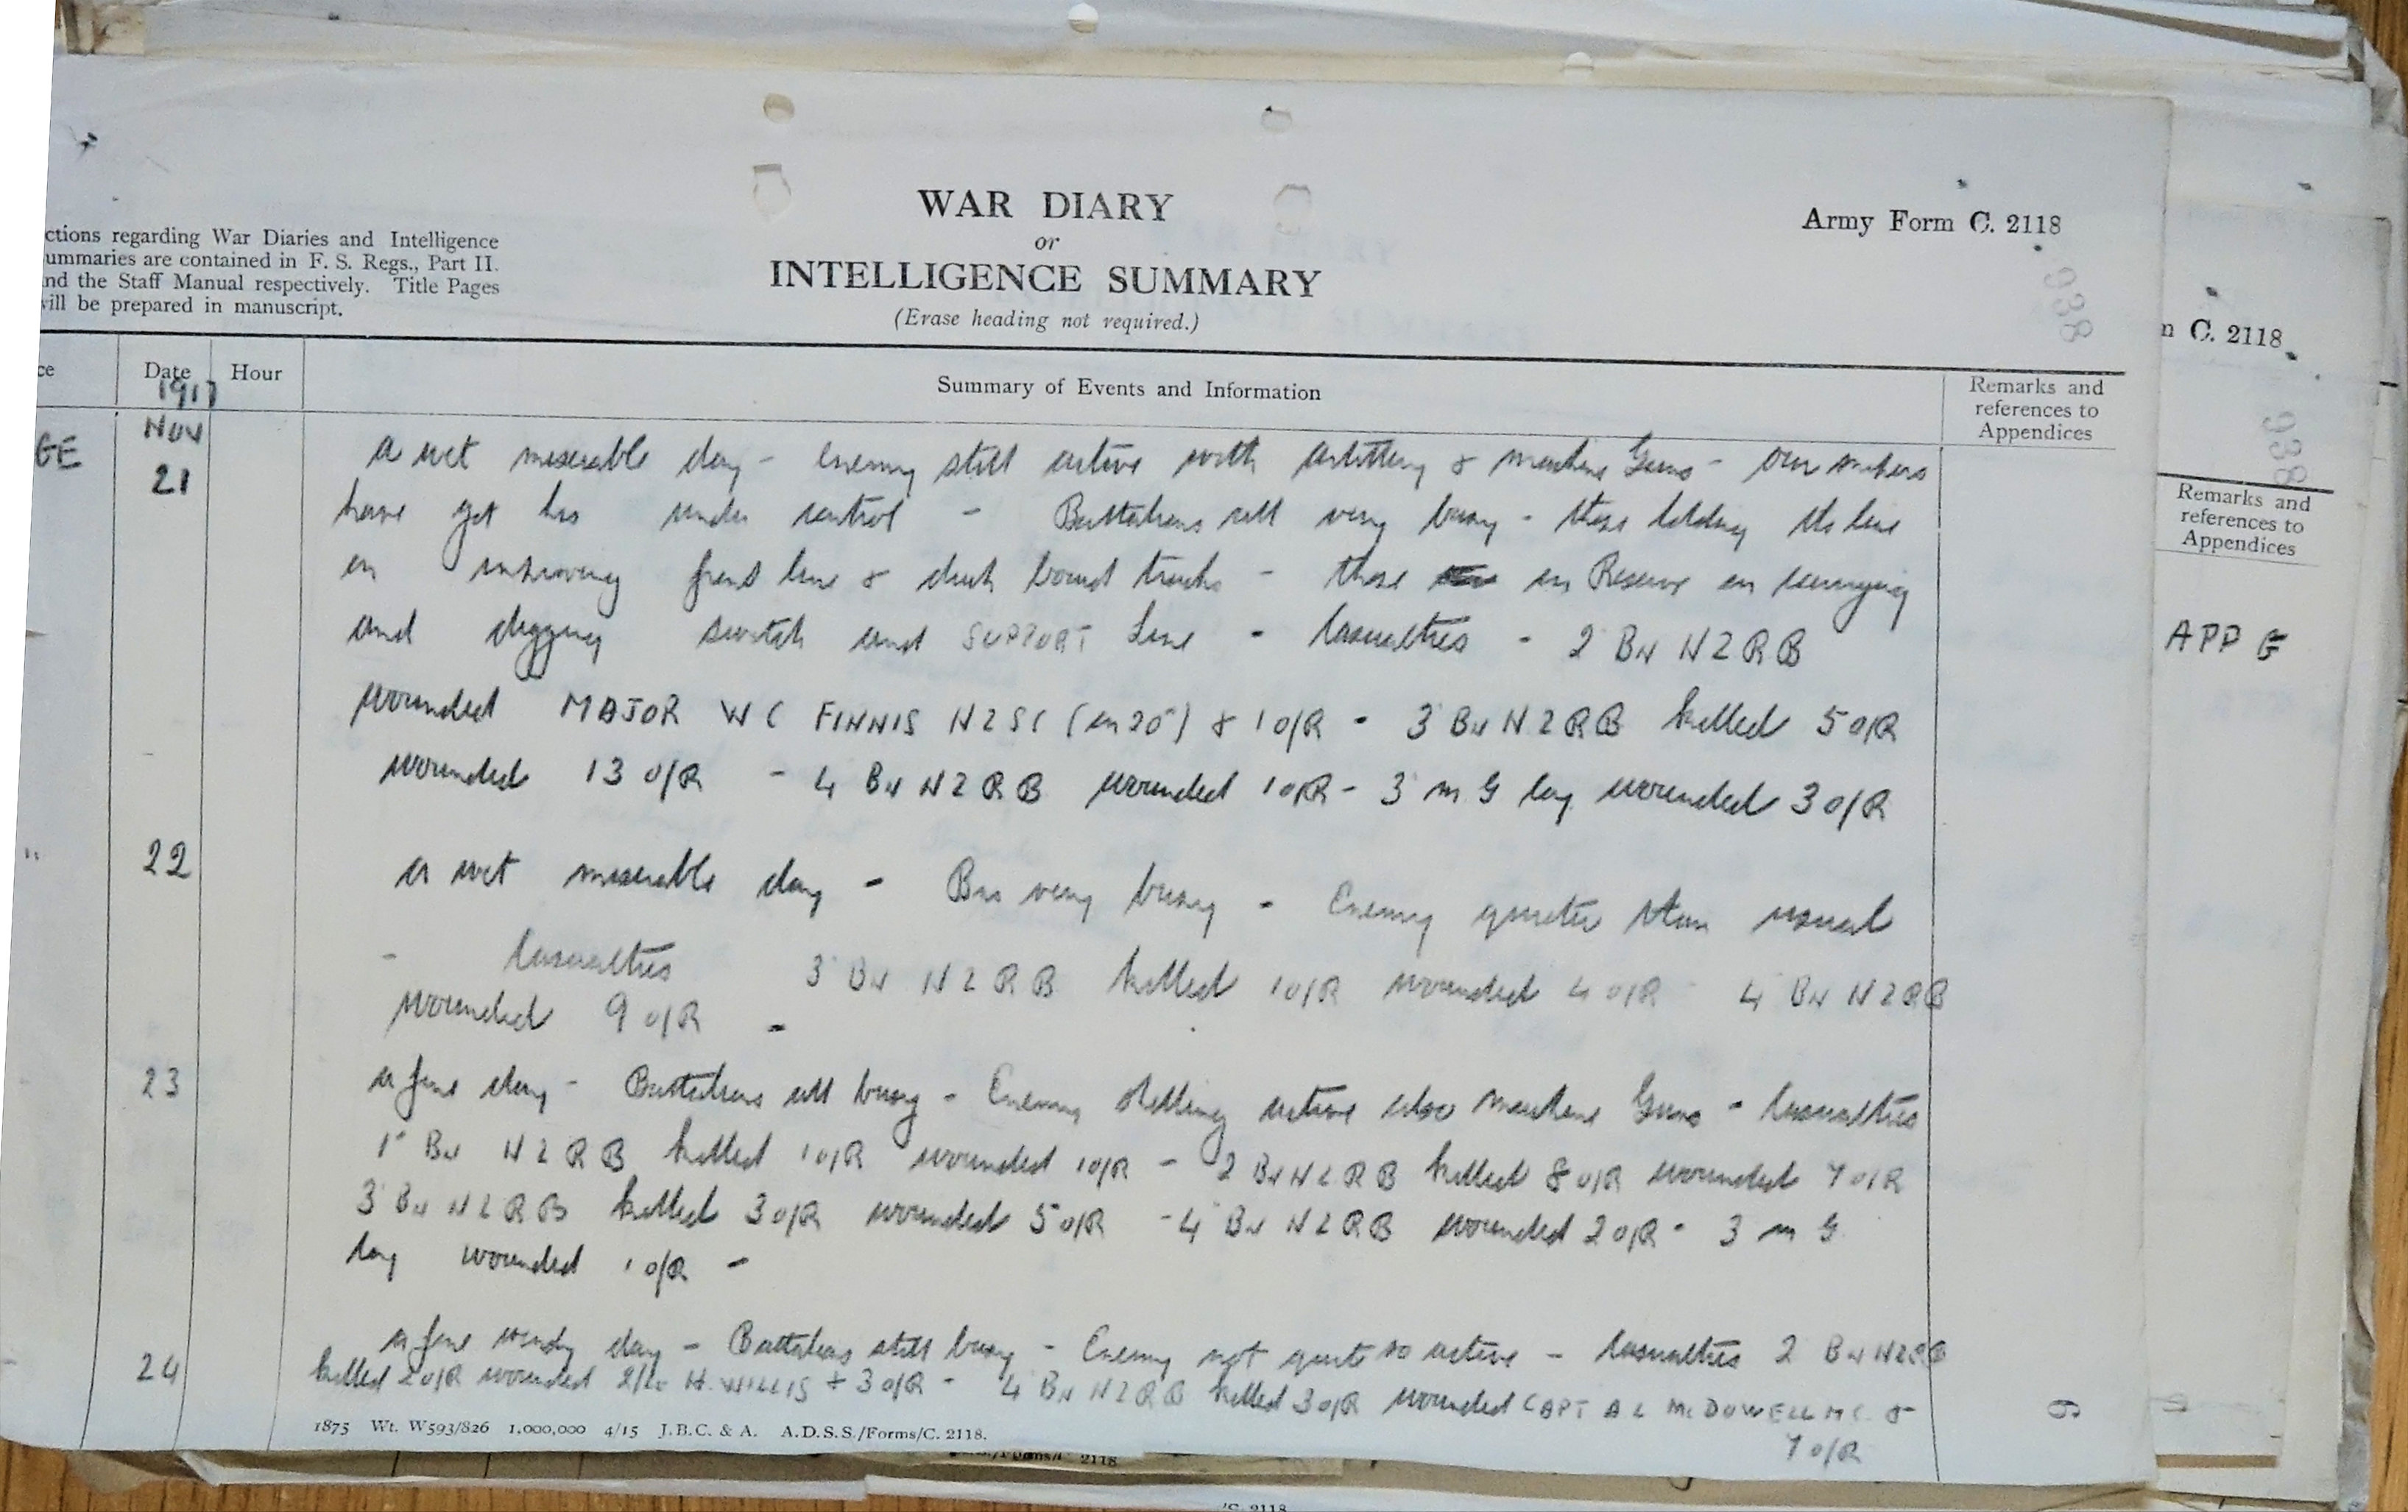 WAR DIARY
or
INTELLIGENCE SUMMARY
(Erase heading not required.)
Army Form C. 2118
ctions regarding War Diaries and Intelligence
ummaries are contained in F. S. Regs., Part II.
nd the Staff Manual respectively. Title Pages
will be prepared in manuscript.
938
ce Date Hour Summary of Events and Information Remarks and references to Appendices
1917
GE Nov
21 a wet miserable day - Enemy still active with artillery & machine Guns - our snipers
have got his under control - Battalions all very busy - those holding the line
on improving front line & duck board tracks - those in Reserve on carrying
and digging switch and SUPPORT Line - Casualties - 2 BN NZRB
wounded MAJOR W C FINNIS NZSC 1 O/R - 3 BN NZRB killed 5 O/R
wounded 13 O/R - 4 BN NZRB wounded 1 O/R - 3 M G Coy wounded 3 O/R
" 22 a wet miserable day - Bns very busy - Enemy quieter than usual
- Casualties 3 BN NZRB killed 1 O/R wounded 4 O/R 4 BN NZRB
wounded 9 O/R -
23 a fine day - Battalions all busy - Enemy shelling active also machine Guns - Casualties
1 BN NZRB killed 1 O/R wounded 1 O/R - 2 BN NZRB killed 8 O/R wounded 7 O/R
3 BN NZRB killed 3 O/R wounded 5 O/R - 4 BN NZRB wounded 2 O/R - 3 M G
Coy wounded 1 O/R -
24 a fine windy day - Battalions still busy - Enemy not quite so active - Casualties 2 BN NZRB
killed 2 O/R wounded 2/Lt H. WILLIS + 3 O/R - 4 BN NZRB killed 3 O/R wounded CAPT A L McDOWELL MC &
7 O/R
1875 Wt. W593/826 1,000,000 4/15 J.B.C. & A. A.D.S.S./Forms/C. 2118.
n C. 2118
938
Remarks and
references to
Appendices
APP
2118
/C. 2118